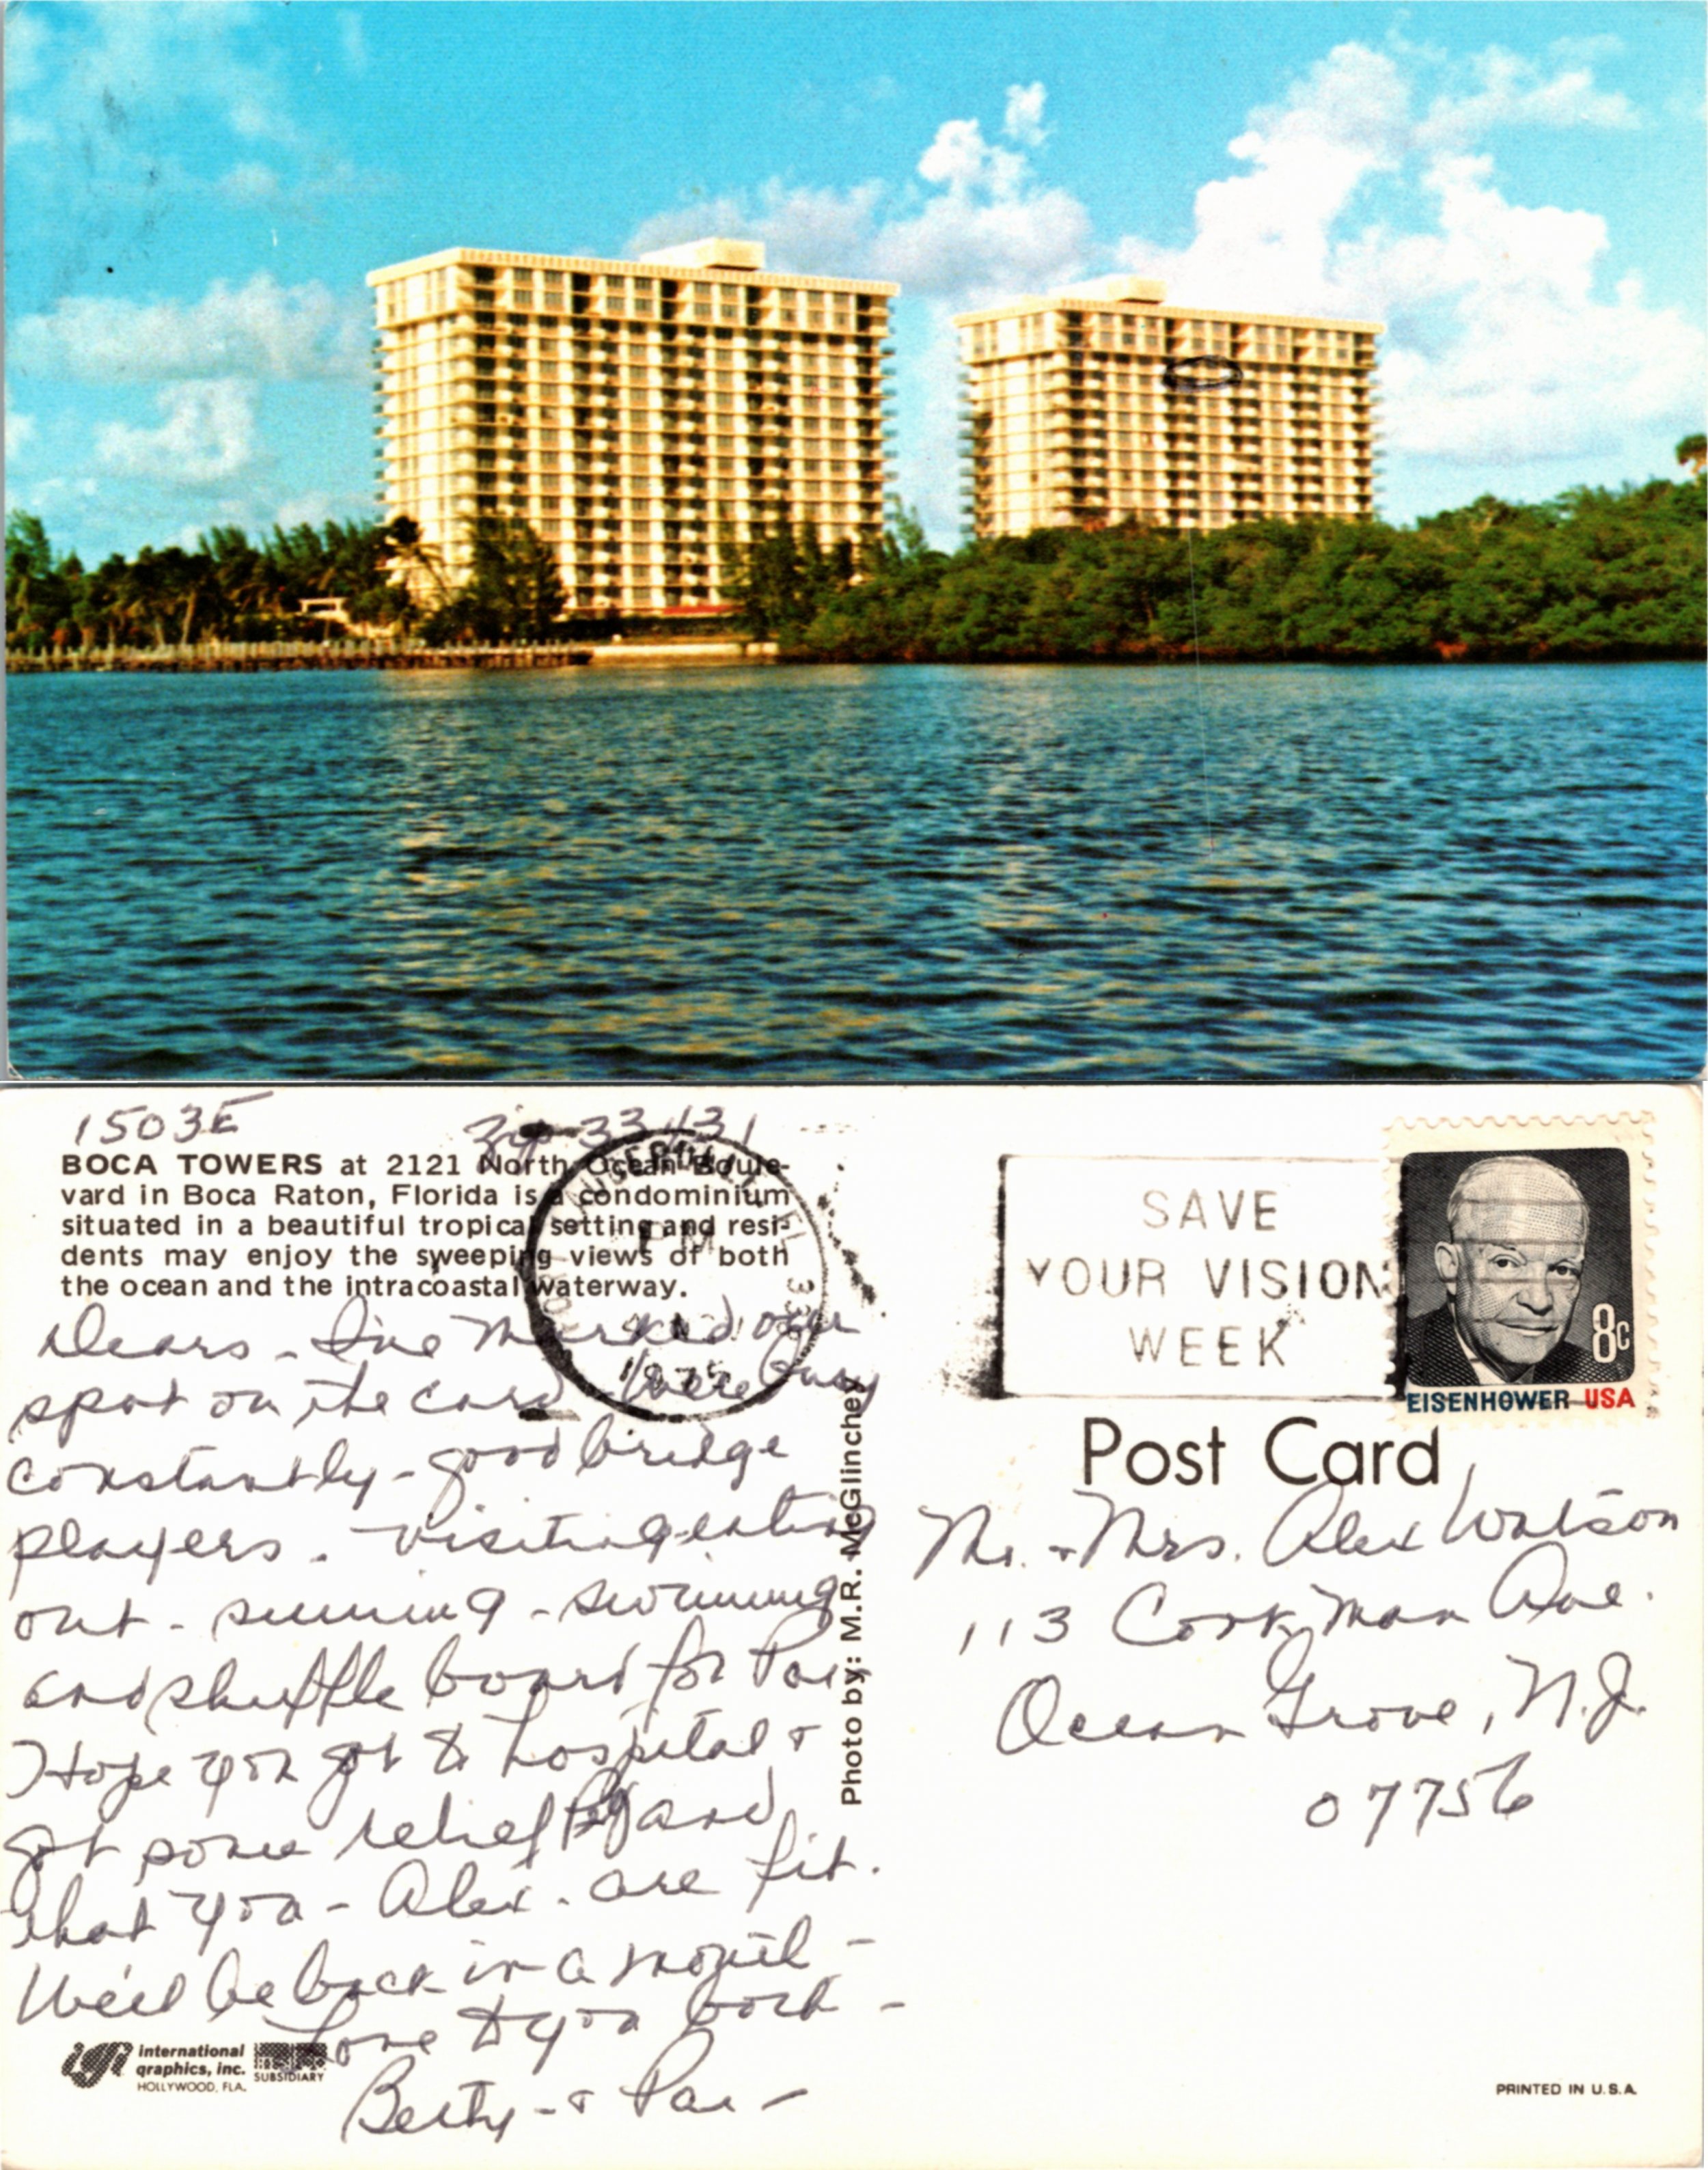 1503E Zip 33431
BOCA TOWERS at 2121 North Ocean Boule-
vard in Boca Raton, Florida is a condominium
situated in a beautiful tropical setting and resi-
dents may enjoy the sweeping views of both
the ocean and the intracoastal waterway.
Dears - I've marked our
spot on the card. We're busy
constantly - good bridge
players. - visiting eating
out - sunning - swimming
and shuffle board for Par
Hope you got to hospital &
got some relief Peg and
that you - Alex - are fit.
We'll be back in a month -
Love to you both -
Betty - & Par -
international
graphics, inc.
HOLLYWOOD, FLA.
SUBSIDIARY
Photo by: M.R. McGlinchey
FORT LAUDERDALE, FL
PM
1975
SAVE
YOUR VISION
WEEK
8c
EISENHOWER USA
Post Card
Mr. & Mrs. Alex Watson
113 Cookman Ave.
Ocean Grove, N.J.
07756
PRINTED IN U.S.A.